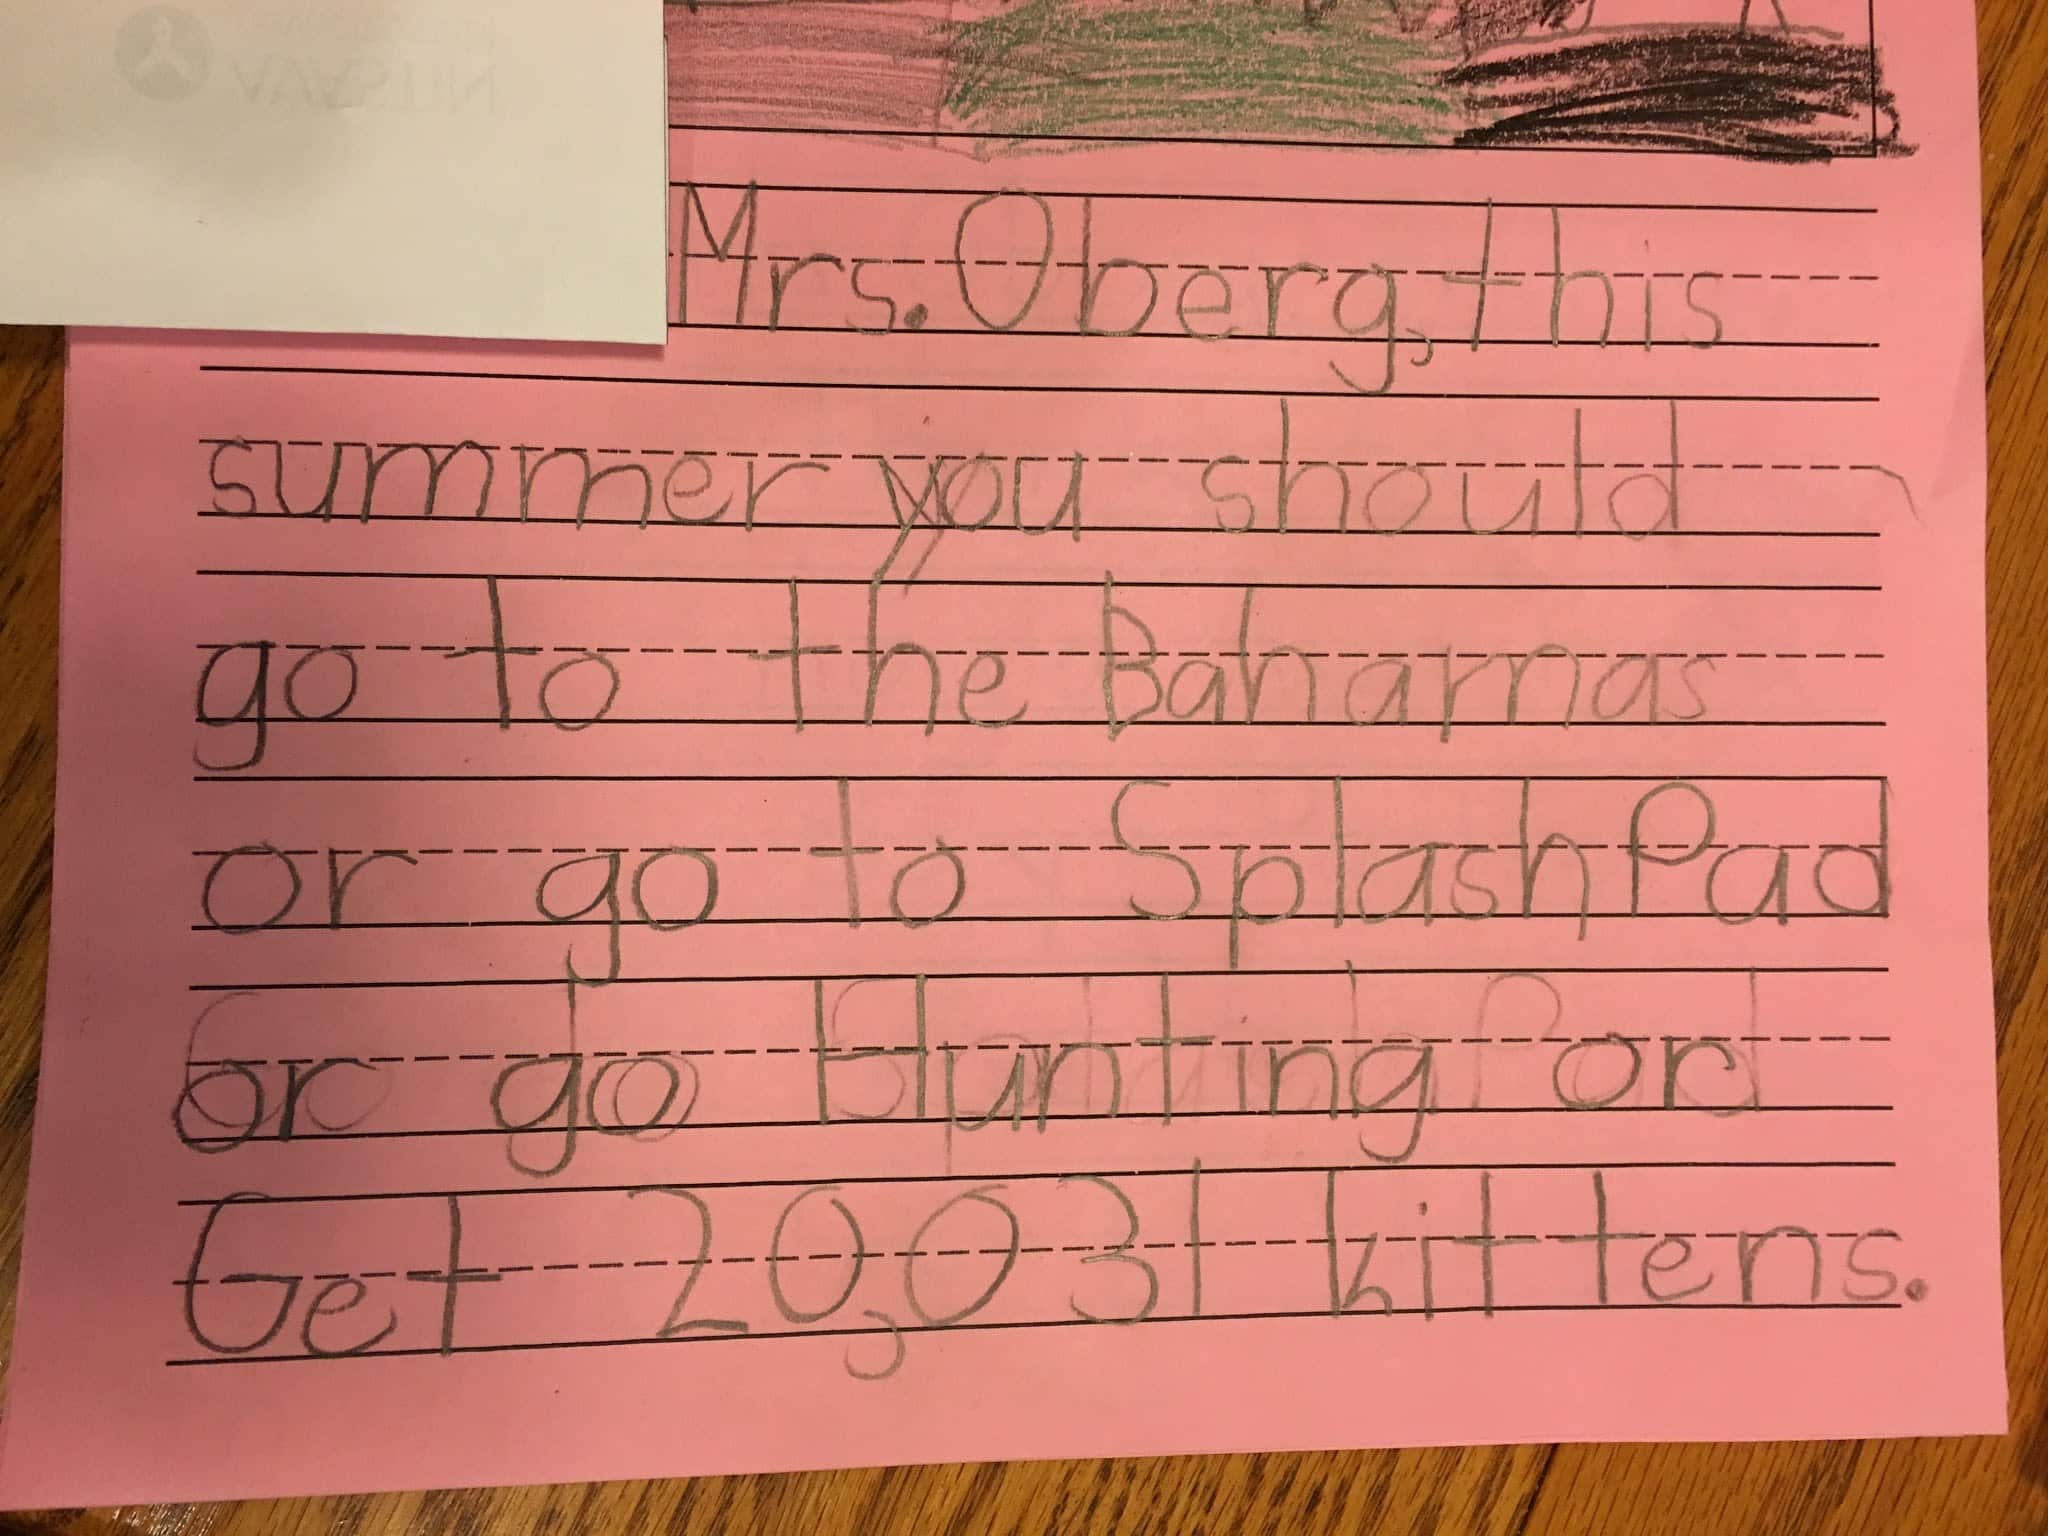 Mrs. Oberg, this
summer you should
go to the Bahamas
or go to Splash Pad
or go Hunting or
Get 20,031 kittens.